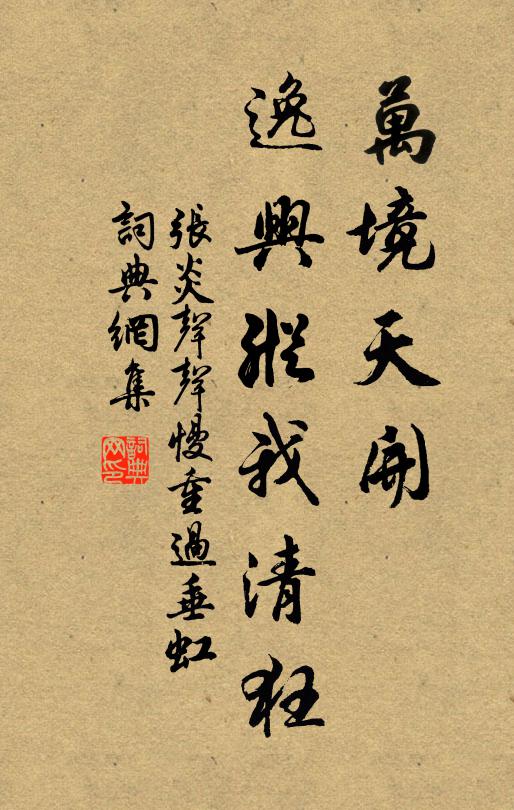 萬境天開
逸興縱我清狂
張炎聲聲慢重過垂虹
詞典網集
詞典網印